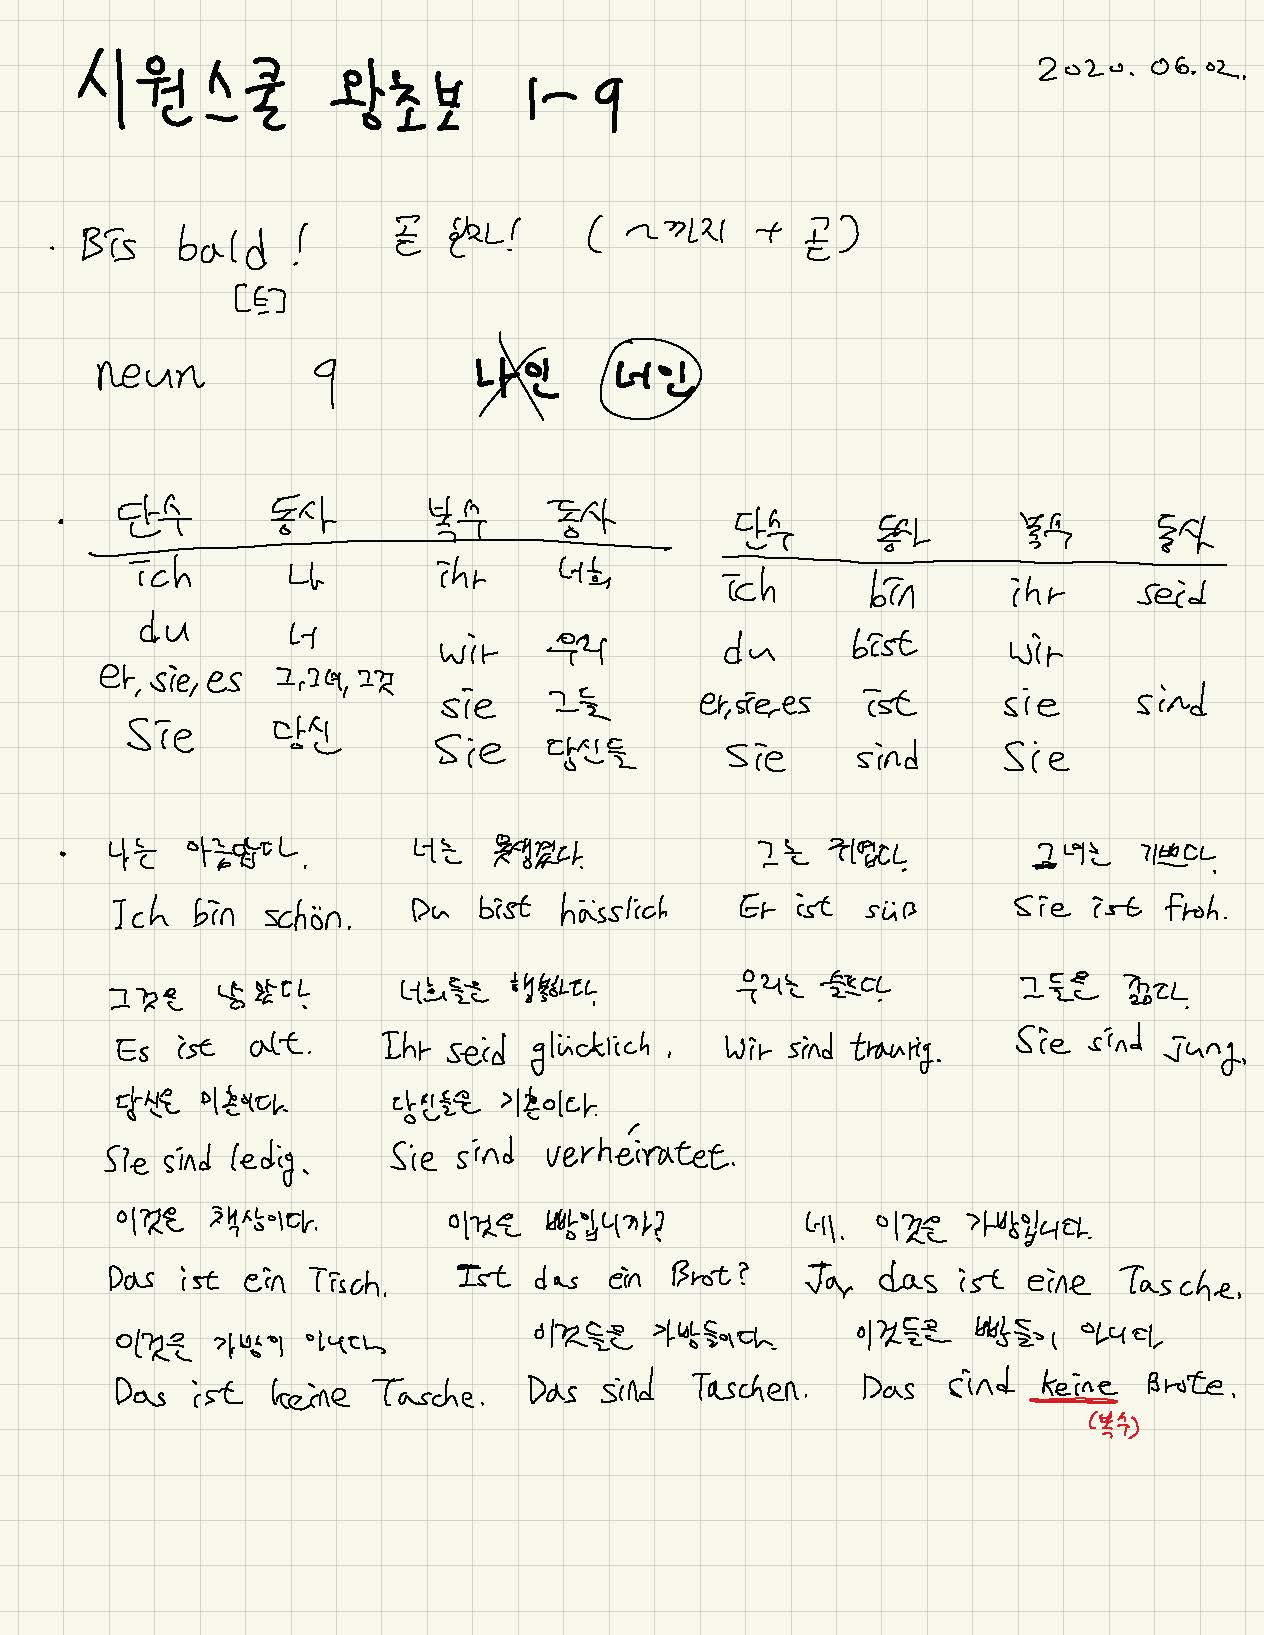 시원스쿨 왕초보 1-9 2020. 06. 02.
· Bis bald! 곧 봐! (~까지 + 곧)
[트]
neun 9 나인 너인
· 단수 동사 복수 동사 단수 동사 복수 동사
ich 나 ihr 너희 ich bin ihr seid
du 너 wir 우리 du bist wir
er, sie, es 그, 그녀, 그것 sie 그들 er, sie, es ist sie sind
Sie 당신 Sie 당신들 Sie sind Sie
· 나는 아름답다. 너는 못생겼다. 그는 귀엽다. 그녀는 기쁘다.
Ich bin schön. Du bist hässlich Er ist süß Sie ist froh.
그것은 낡았다. 너희들은 행복하다. 우리는 슬프다. 그들은 젊다.
Es ist alt. Ihr seid glücklich. Wir sind traurig. Sie sind jung.
당신은 미혼이다. 당신들은 기혼이다.
Sie sind ledig. Sie sind verheiratet.
이것은 책상이다. 이것은 빵입니까? 네. 이것은 가방입니다.
Das ist ein Tisch. Ist das ein Brot? Ja, das ist eine Tasche.
이것은 가방이 아니다. 이것들은 가방들이다. 이것들은 빵들이 아니다
Das ist keine Tasche. Das sind Taschen. Das sind keine Brote.
(복수)